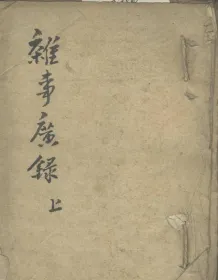 雜事廣錄
上